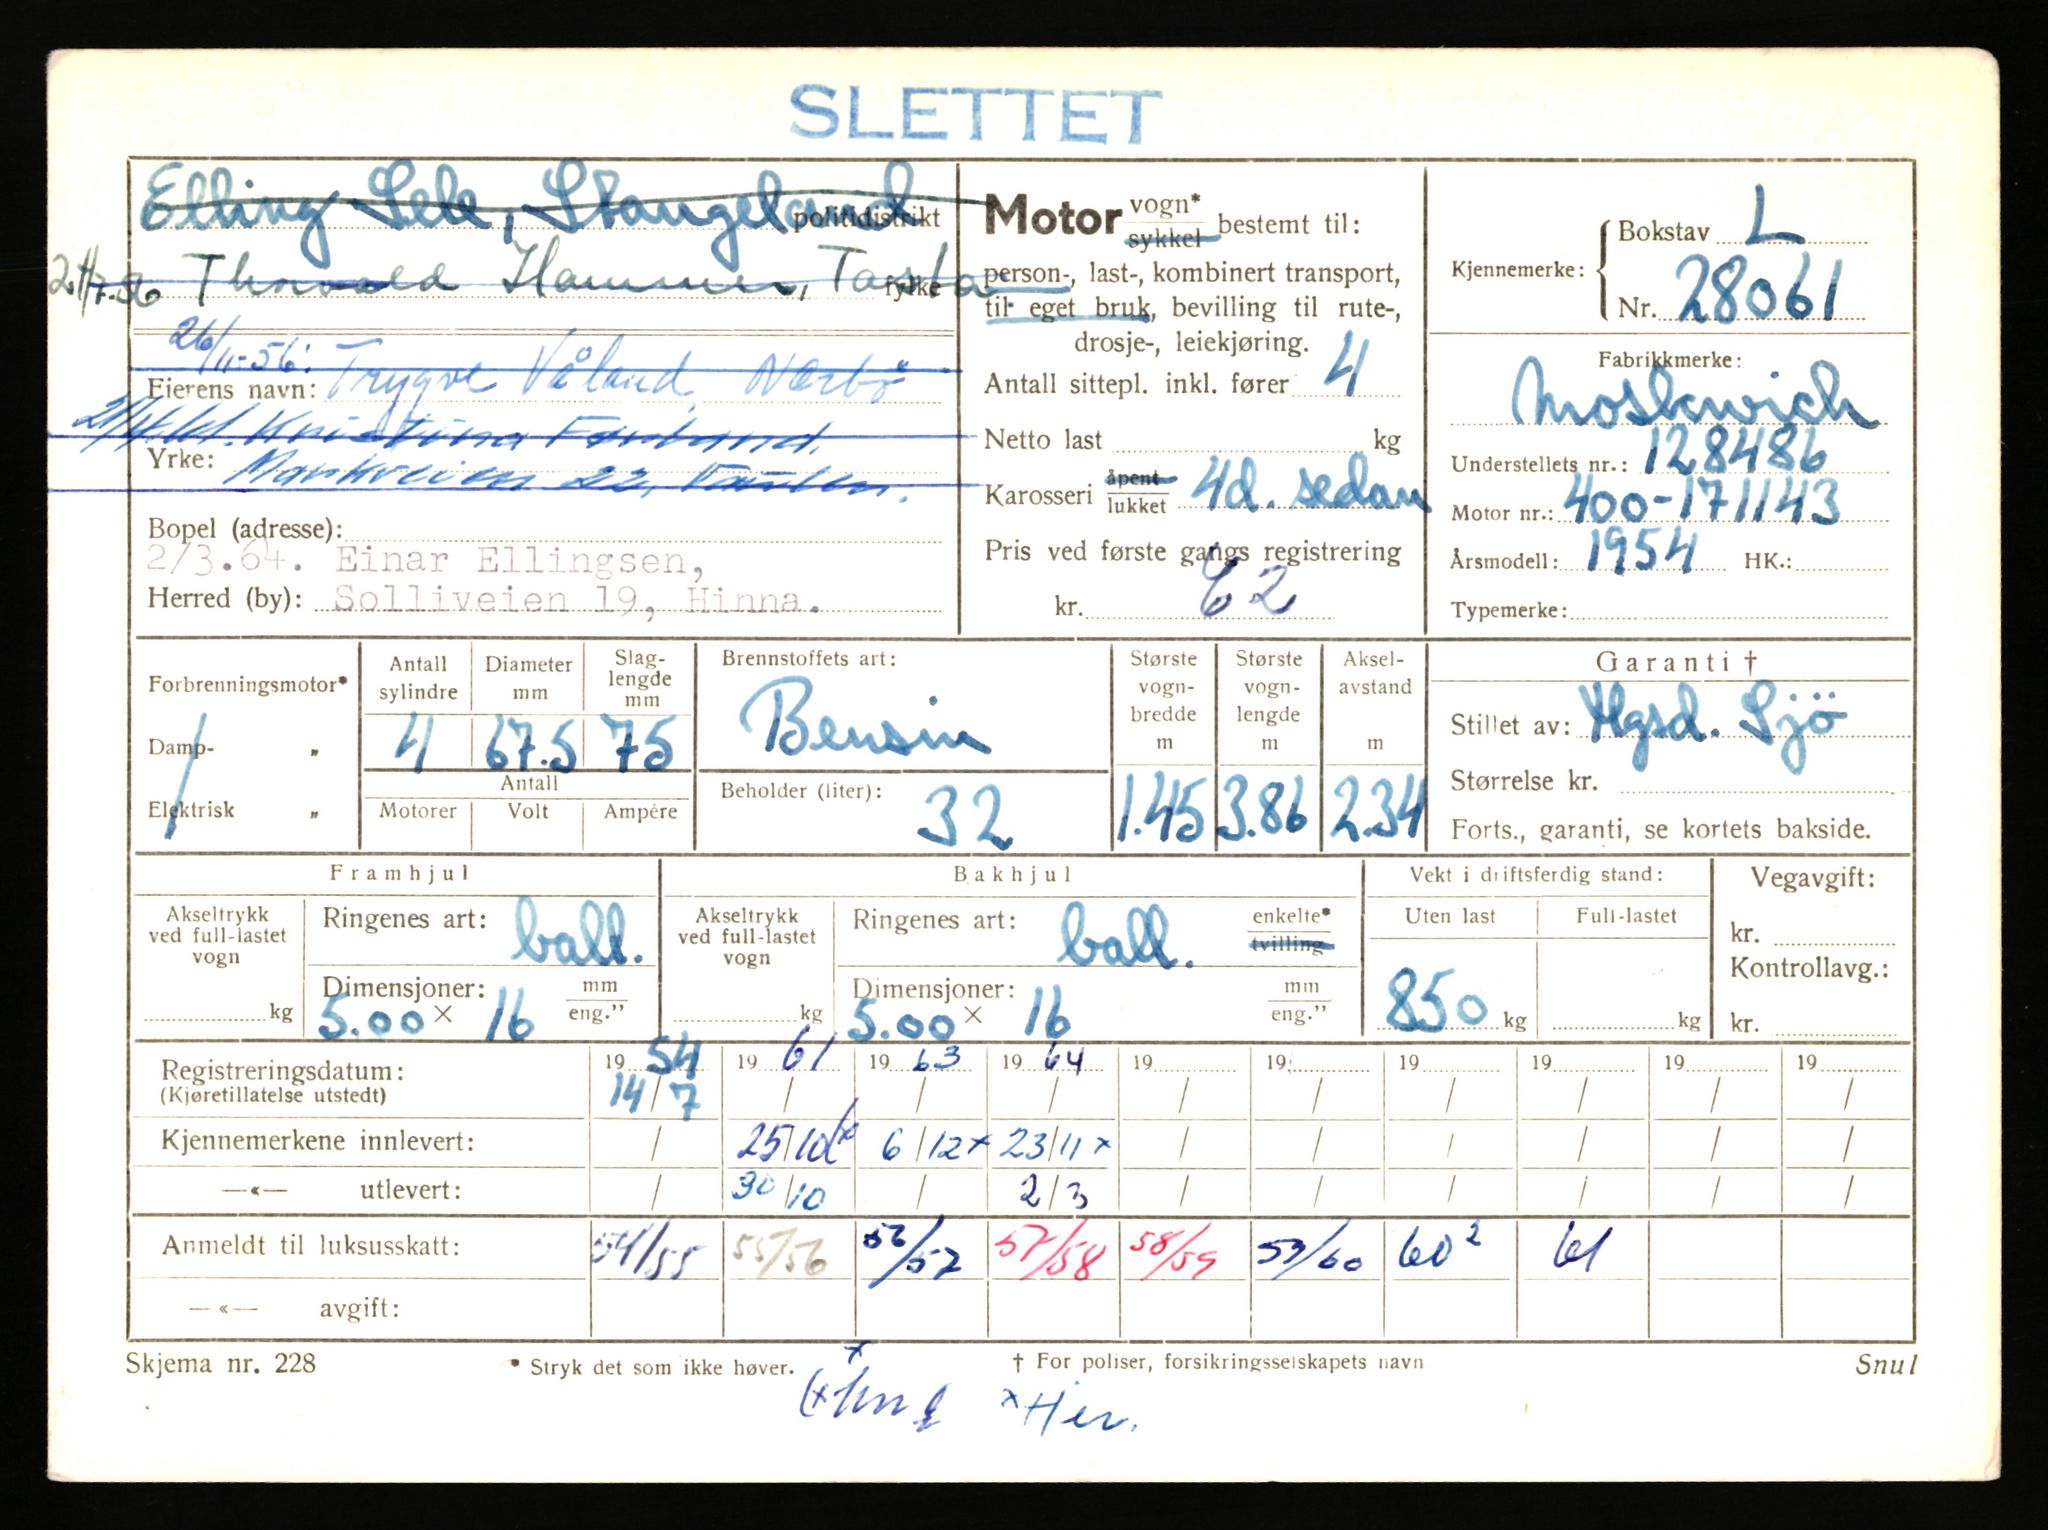 SLETTET
Elling Sele, Stangeland politidistrikt
Thorvald Hammer, Tasta fylke
26/11-56:
Eierens navn: Trygve Våland, Nærbø
Kristina
Yrke:
Bopel (adresse):
2/3.64. Einar Ellingsen,
Herred (by): Solliveien 19, Hinna.
Motor vogn* sykkel bestemt til:
person-, last-, kombinert transport,
til eget bruk, bevilling til rute-,
drosje-, leiekjøring.
Antall sittepl. inkl. fører 4
Netto last kg
Karosseri åpent lukket 4d. sedan
Pris ved første gangs registrering
kr. 62
Kjennemerke: Bokstav L
Nr. 28061
Fabrikkmerke:
Moskwich
Understellets nr.: 128486
Motor nr.: 400-171143
Årsmodell: 1954 HK.:
Typemerke:
Forbrenningsmotor*
Damp- „
Elektrisk „
Antall sylindre 4
Diameter mm 67.5
Slag-lengde mm 75
Antall
Motorer Volt Ampére
Brennstoffets art:
Bensin
Beholder (liter): 32
Største vogn-bredde m 1.45
Største vogn-lengde m 3.86
Aksel-avstand m 2.34
Garanti †
Stillet av: Hgsd. Sjö
Størrelse kr.
Forts., garanti, se kortets bakside.
Framhjul
Akseltrykk ved full-lastet vogn kg
Ringenes art: ball.
Dimensjoner: mm eng.”
5.00 × 16
Bakhjul
Akseltrykk ved full-lastet vogn kg
Ringenes art: ball. enkelte* tvilling
Dimensjoner: mm eng.”
5.00 × 16
Vekt i driftsferdig stand:
Uten last Full-lastet
850 kg kg
Vegavgift:
kr.
Kontrollavg.:
kr.
Registreringsdatum: 1954 1961 1963 1964 19 19 19 19 19 19
(Kjøretillatelse utstedt) 14/7 / / / / / / / / /
Kjennemerkene innlevert: / 25/10 6/12 x 23/11 x / / / / / /
—«— utlevert: / 30/10 / 2/3 / / / / / /
Anmeldt til luksusskatt: 54/55 55/56 56/57 57/58 58/59 59/60 60² 61
—«— avgift:
Skjema nr. 228 * Stryk det som ikke høver. † For poliser, forsikringsselskapets navn Snul
x Her.